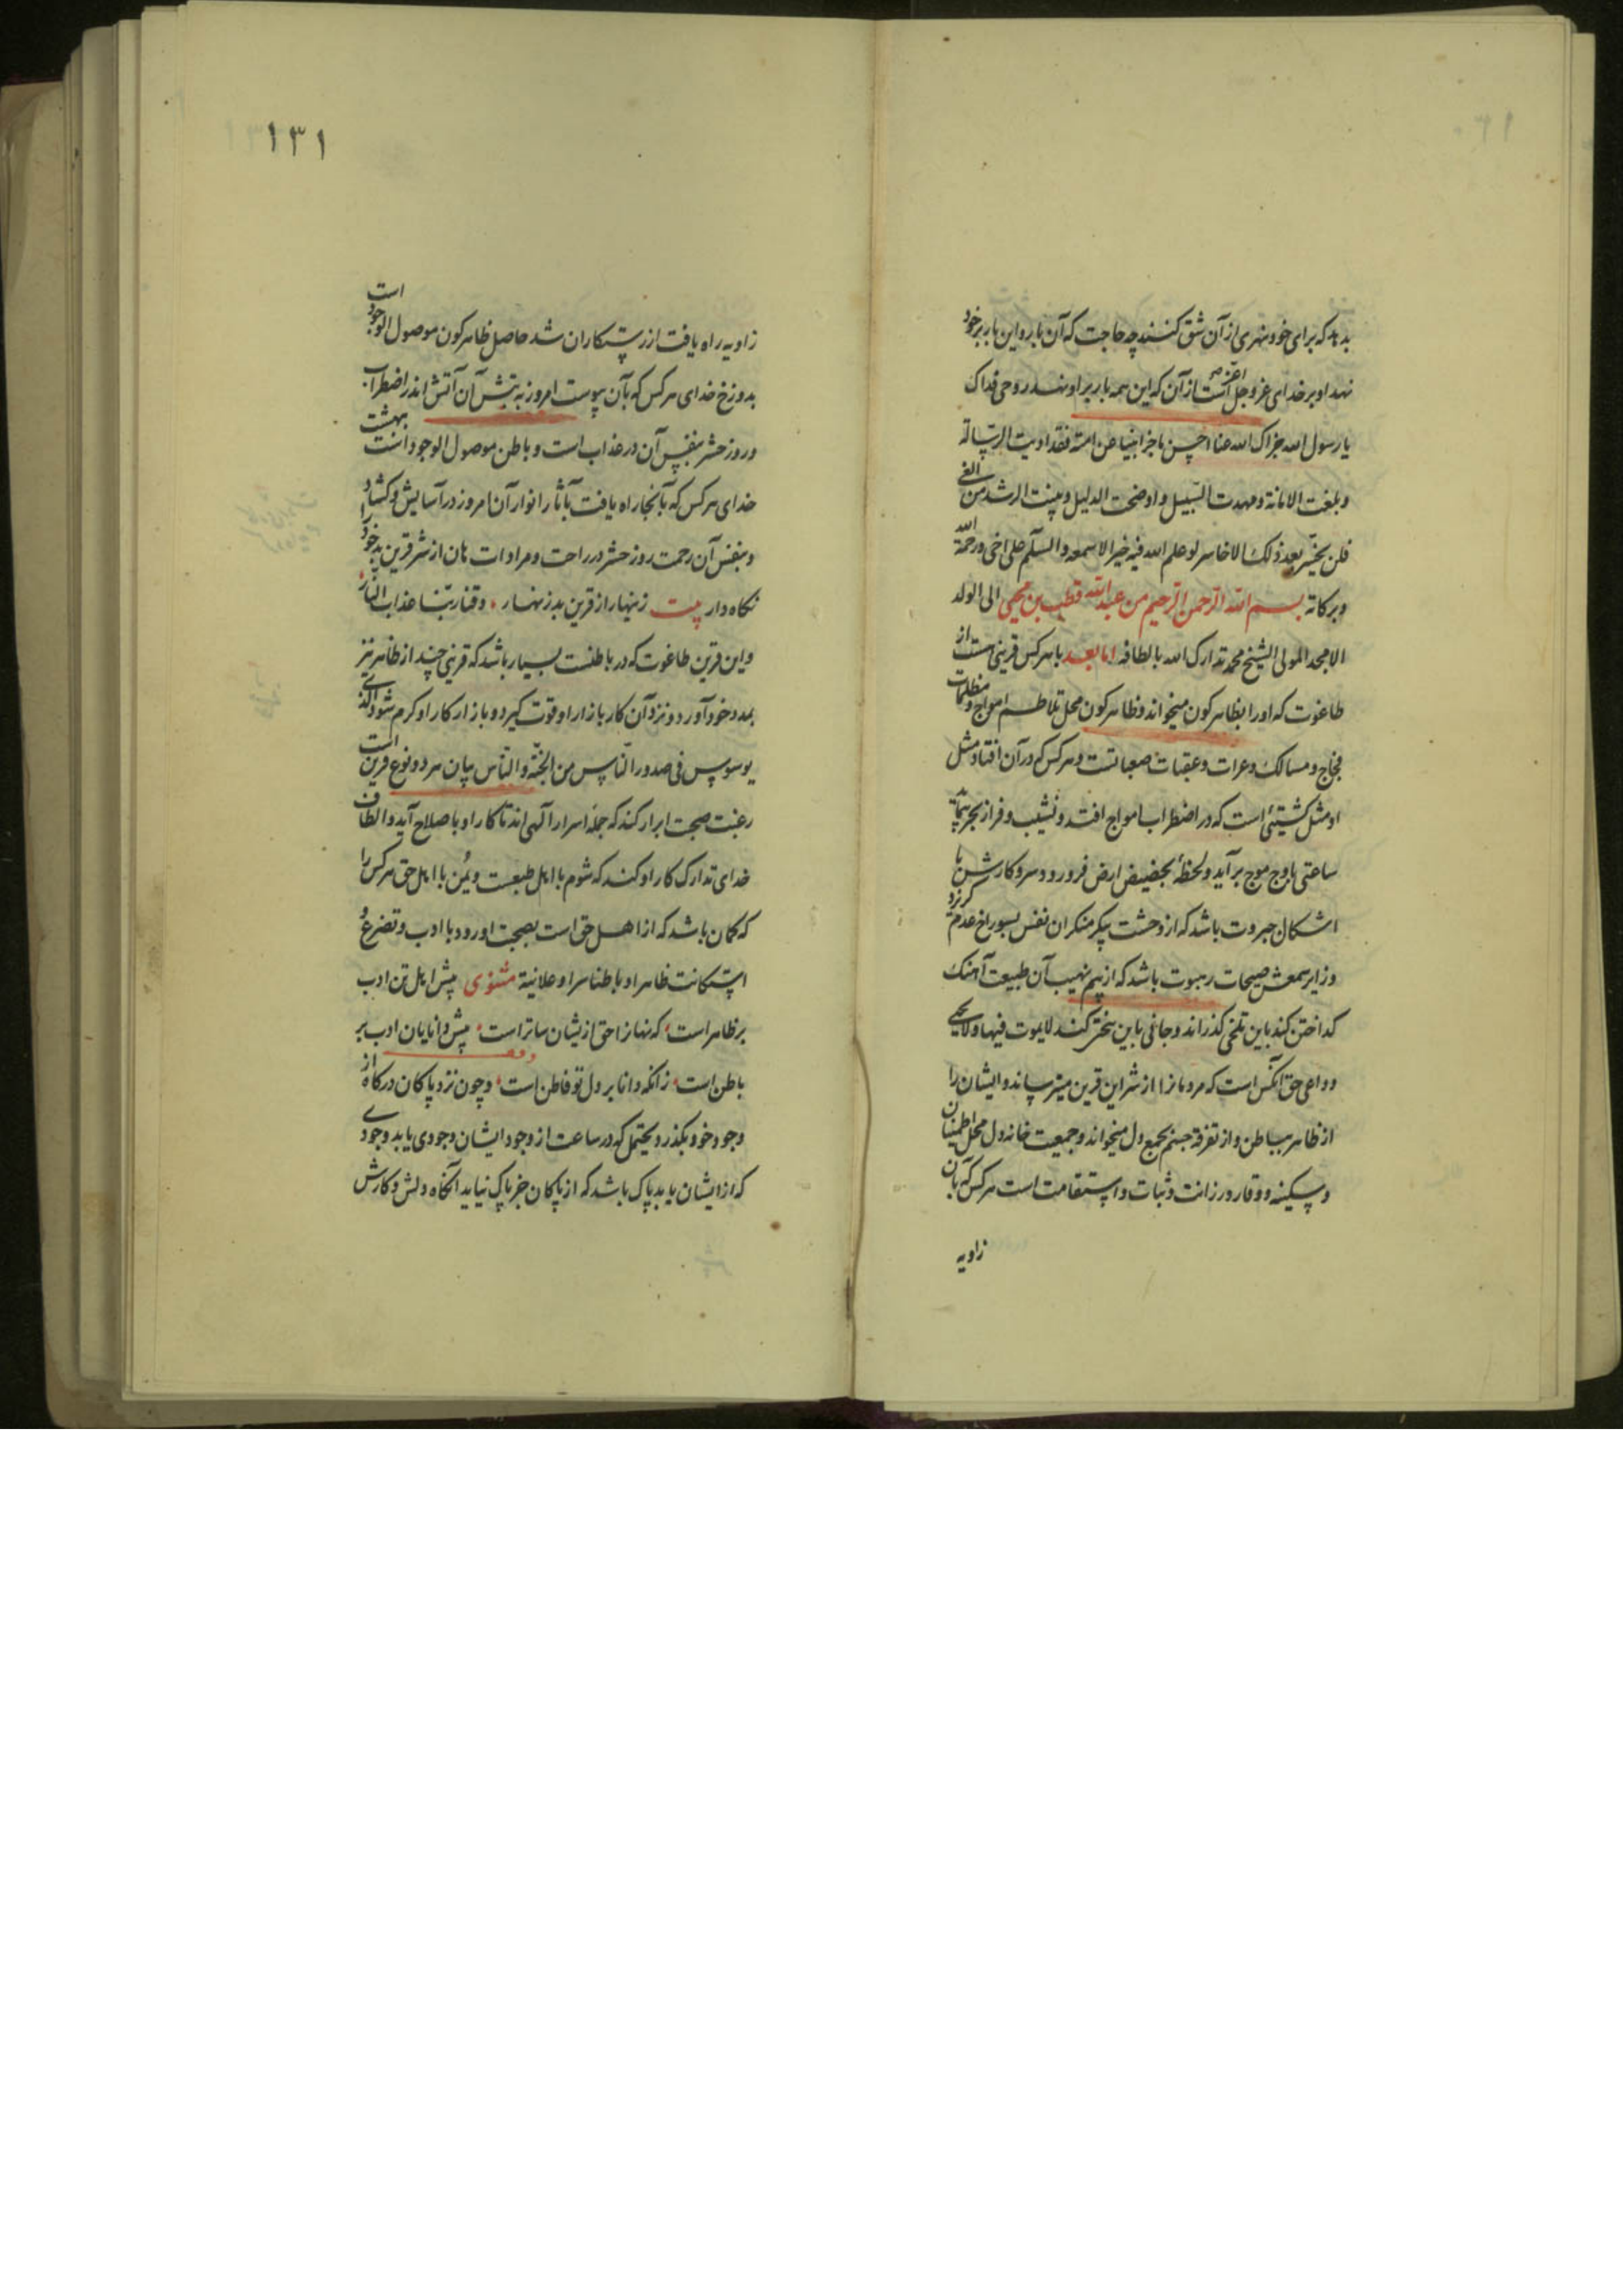 بدهد که برای خود نهری از آن شق کنند چه حاجت که آن بار و این بار بر خود
نهد او بر خدای عز و جل اعز است از آن که این همه بار بر او نهد روحی فداک
یا رسول الله جزاک الله عنا احسن ما جزا نبیا عن امته فقد ادیت الرسالة
و بلغت الامانة و مهدت السبیل و اوضحت الدلیل و بینت الرشد من الغی
فلن یخسر بعد ذلک الا خاسر لو علم الله فیه خیرا لاسمعه و السلم علی اخی و رحمة الله
و برکاته بسم الله الرحمن الرحیم من عبد الله قطب بن محیی الی الولد
الامجد المولی الشیخ محمد تدارک الله بالطافه اما بعد با هر کس قرینی هست از
طاغوت که او را بظاهر کون میخواند و ظاهر کون محل تلاطم امواج و مظلمات
فجاج و مسالک وعرات و عقبات صعبانست و هر کس که در آن افتاد مثل
او مثل کشتیئی است که در اضطراب امواج افتد و نشیب و فراز بحر
ساعتی باوج موج برآید و لحظهٔ بحضیض ارض فرو رود و سر و کارش با
اشکال جبروت باشد که از دحشت پیکر منکر ان نفس بسوراخ عدم گریزد
و زایر سمعش صیحات رهبوت باشد که از بیم نهیب آن طبیعت آهنک
کداختن کند باین تلخی کذراند و جانی باین سختی کند لا یموت فیها و لا یحیی
و داعی حق آنکس است که مردمانرا از شر این قرین میترساند و ایشان را
از ظاهر بباطن و از تفرقه جسم بجمع دل میخواند و جمعیت خانه دل محل اطمینان
و سکینه و وقار و رزانت و ثبات و استقامت است هر کس که بآن
زاویه
١٣١
زاویه راه یافت از رستکاران شد حاصل ظاهر کون موصول الوجود است
بدوزخ خدای هر کس که بآن پیوست امروز به تپش آن آتش اندر اضطراب
و روز حشر بنفس آن در عذاب است و باطن موصول الوجود است بهشت
خدای هر کس که بآنجا راه یافت بآثار انوار آن امروز در آسایش و کشاد
و بنفس آن رحمت روز حشر در راحت و مرادات هان از شر قرین بد خود را
نکاه دار بیت زینهار از قرین بد زنهار ، وقنا ربنا عذاب النار
و این قرین طاغوت که در باطنست بسیار باشد که قرینی چند از ظاهر نیز
بمدد خود آورد و نزد آن کار بازار او قوت کیرد و بازار کار او کرم شود الذی
یوسوس فی صدور الناس من الجنة و الناس بیان هر دو نوع قرین است
رغبت صحبت ابرار کند که جمله اسرار آلهی اند تا کار او باصلاح آید و الطاف
خدای تدارک کار او کند که شوم با اهل طبیعت و یمن با اهل حق هر کس را
که کمان باشد که از اهل حق است بصحبت او رود با ادب و تضرع و
استکانت ظاهرا و باطنا سرا و علانیة مثنوی پیش اهل تن ادب
بر ظاهر است ، که نهانرا حق ازیشان ساتر است ، پیش دانایان ادب بر
باطن است ، زانکه دانا بر دل تو فاطن است ، و چون نزد پاکان درکاه از
وجود خود بکذرد یحتمل که در ساعت از وجود ایشان وجودی یابد وجودی
که از ایشان یابد پاک باشد که از پاکان جز پاک نیاید آنکاه دلش و کارش